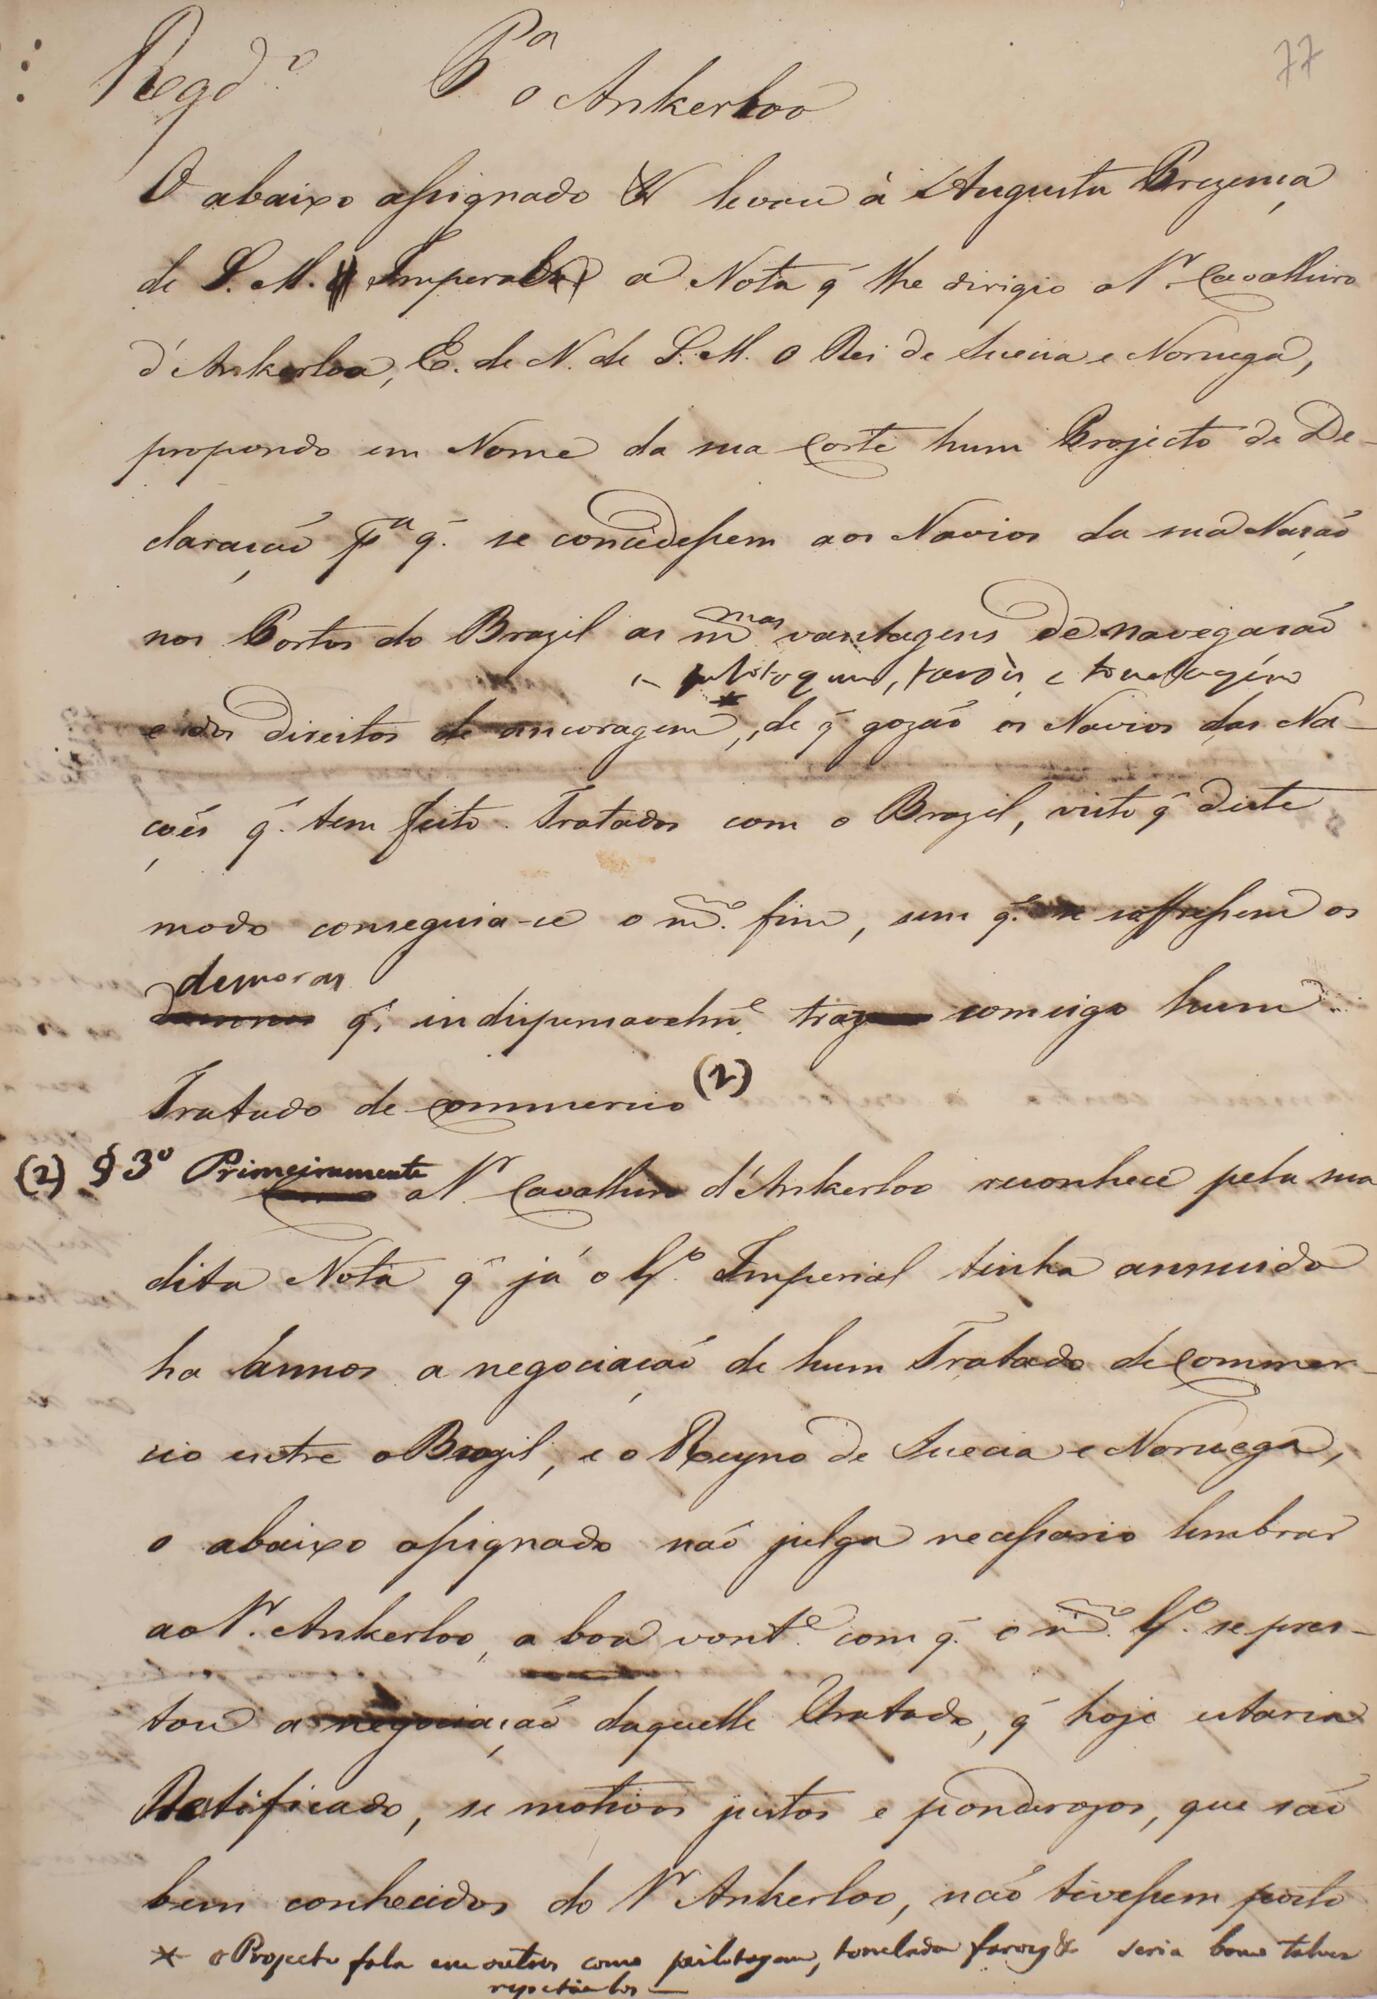 77
Regd.º Pª o Ankerloo
O abaixo assignado levou á Augusta Prezença
de S. M. Imperador a Nota q̃ lhe dirigio o Sr. Cavalheiro
d'Ankerloo, E. de N. de S. M. O Rei de Suecia e Noruega,
propondo em Nome da sua Corte hum Projecto de De-
claração pª q̃. se concedessem aos Navios da sua Nação
nos Portos do Brazil as mmas vantagens de navegação
pilotagem, faróes, e tonelagem
e dos direitos de ancoragem *, de q̃ gozão os Navios das Na-
çoẽs q̃. tem feito Tratados com o Brazil, visto q̃ deste
modo conseguia-se o mmo. fim, sem q̃. se soffressem os
demoras
q̃. indispensavelmᵉ. traz comsigo hum
Tratado de Commercio (2)
(2) § 3º Primeiramente
o Sr Cavalheiro d'Ankerloo reconhece pela sua
dita Nota q̃ já o Gº. Imperial tinha annuido
ha annos a negociação de hum Tratado de Commer-
cio entre o Brazil, e o Reyno de Suecia e Noruega,
o abaixo assignado não julga necessario lembrar
ao Sr. Ankerloo, a boa vontᵉ. com q̃. o mmo. Gº. se pres-
tou a negociação daquelle Tratado, q̃ hoje estaria
Ratificado, se motivos justos e ponderozos, que são
bem conhecidos do Sr Ankerloo, não tivessem posto
* o Projecto fala em outros como pilotagem, tonelada faroes & seria bom talvez